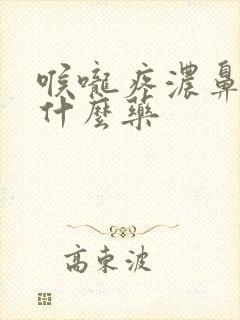 喉嚨疼濃鼻
什麼藥
高東波